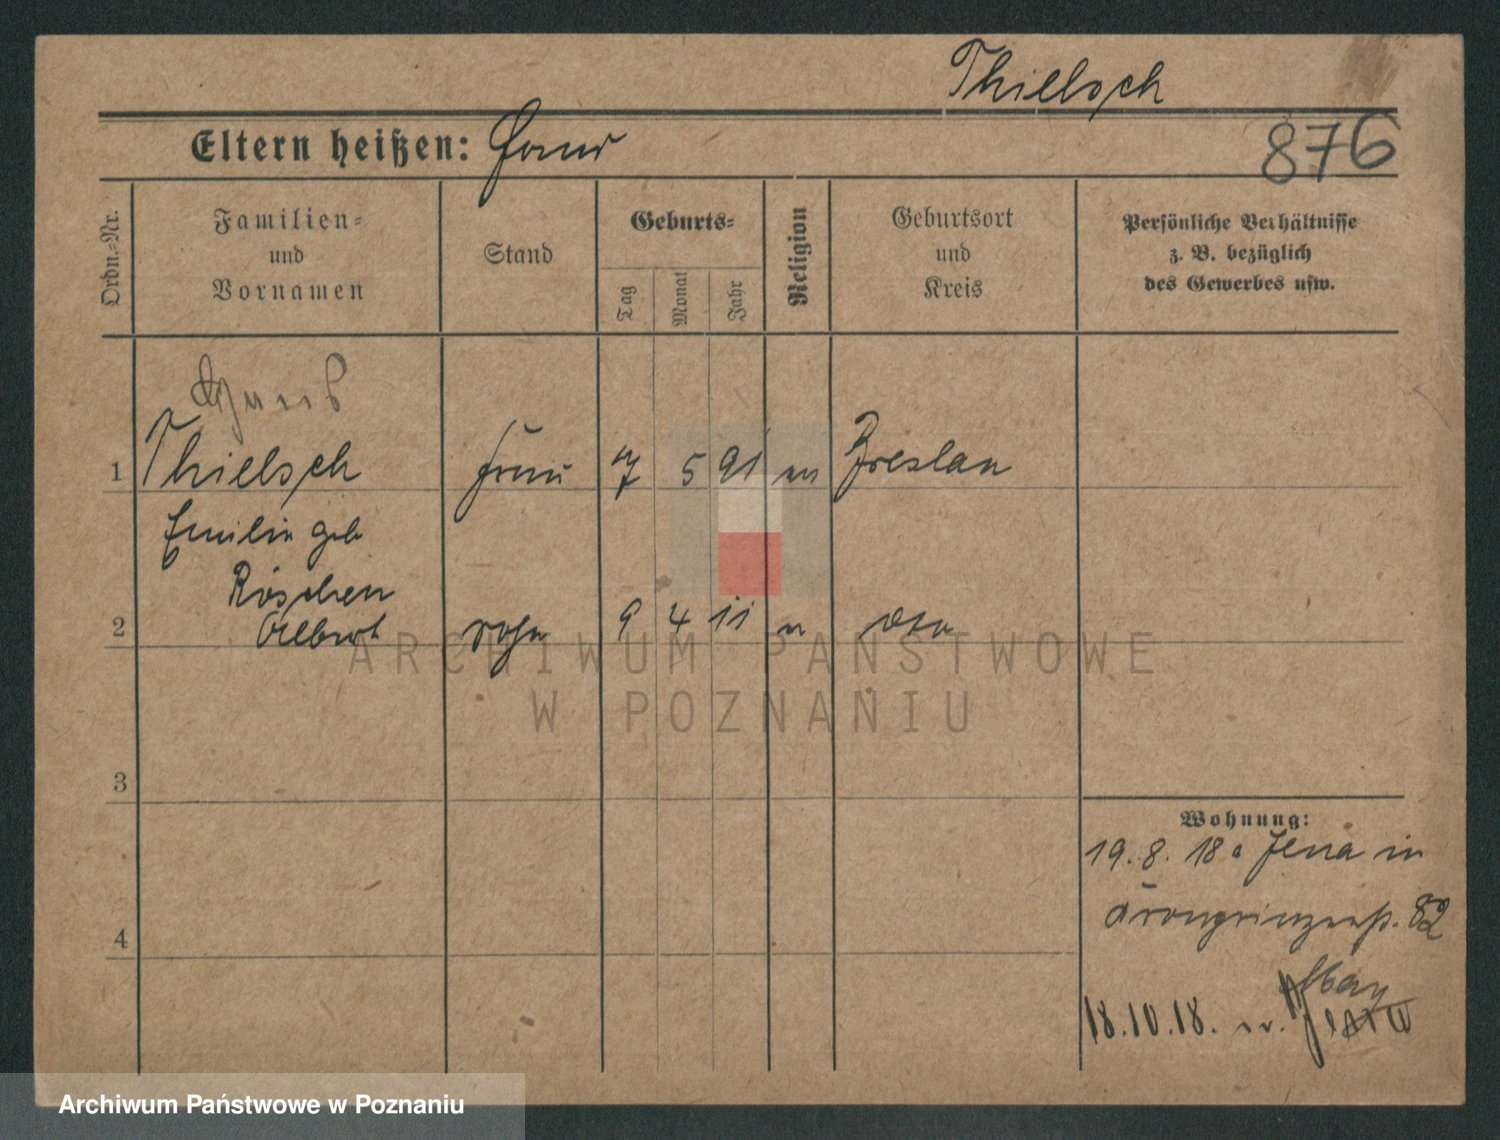 Thielsch
Eltern heißen:
876
Ordn.=Nr.
Familien=
und
Vornamen
Stand
Geburts=
Tag
Monat
Jahr
Religion
Geburtsort
und
Kreis
Persönliche Verhältnisse
z. B. bezüglich
des Gewerbes usw.
1 Thielsch Frau 7 5 91 Breslau
Emilie geb
Röschen
2 Albert Sohn 9 4 11 dto
3
4
Wohnung:
19.8.18 Jena in
Kronprinzenstr. 82
18.10.18. n. Jena
ARCHIWUM PAŃSTWOWE
W POZNANIU
Archiwum Państwowe w Poznaniu